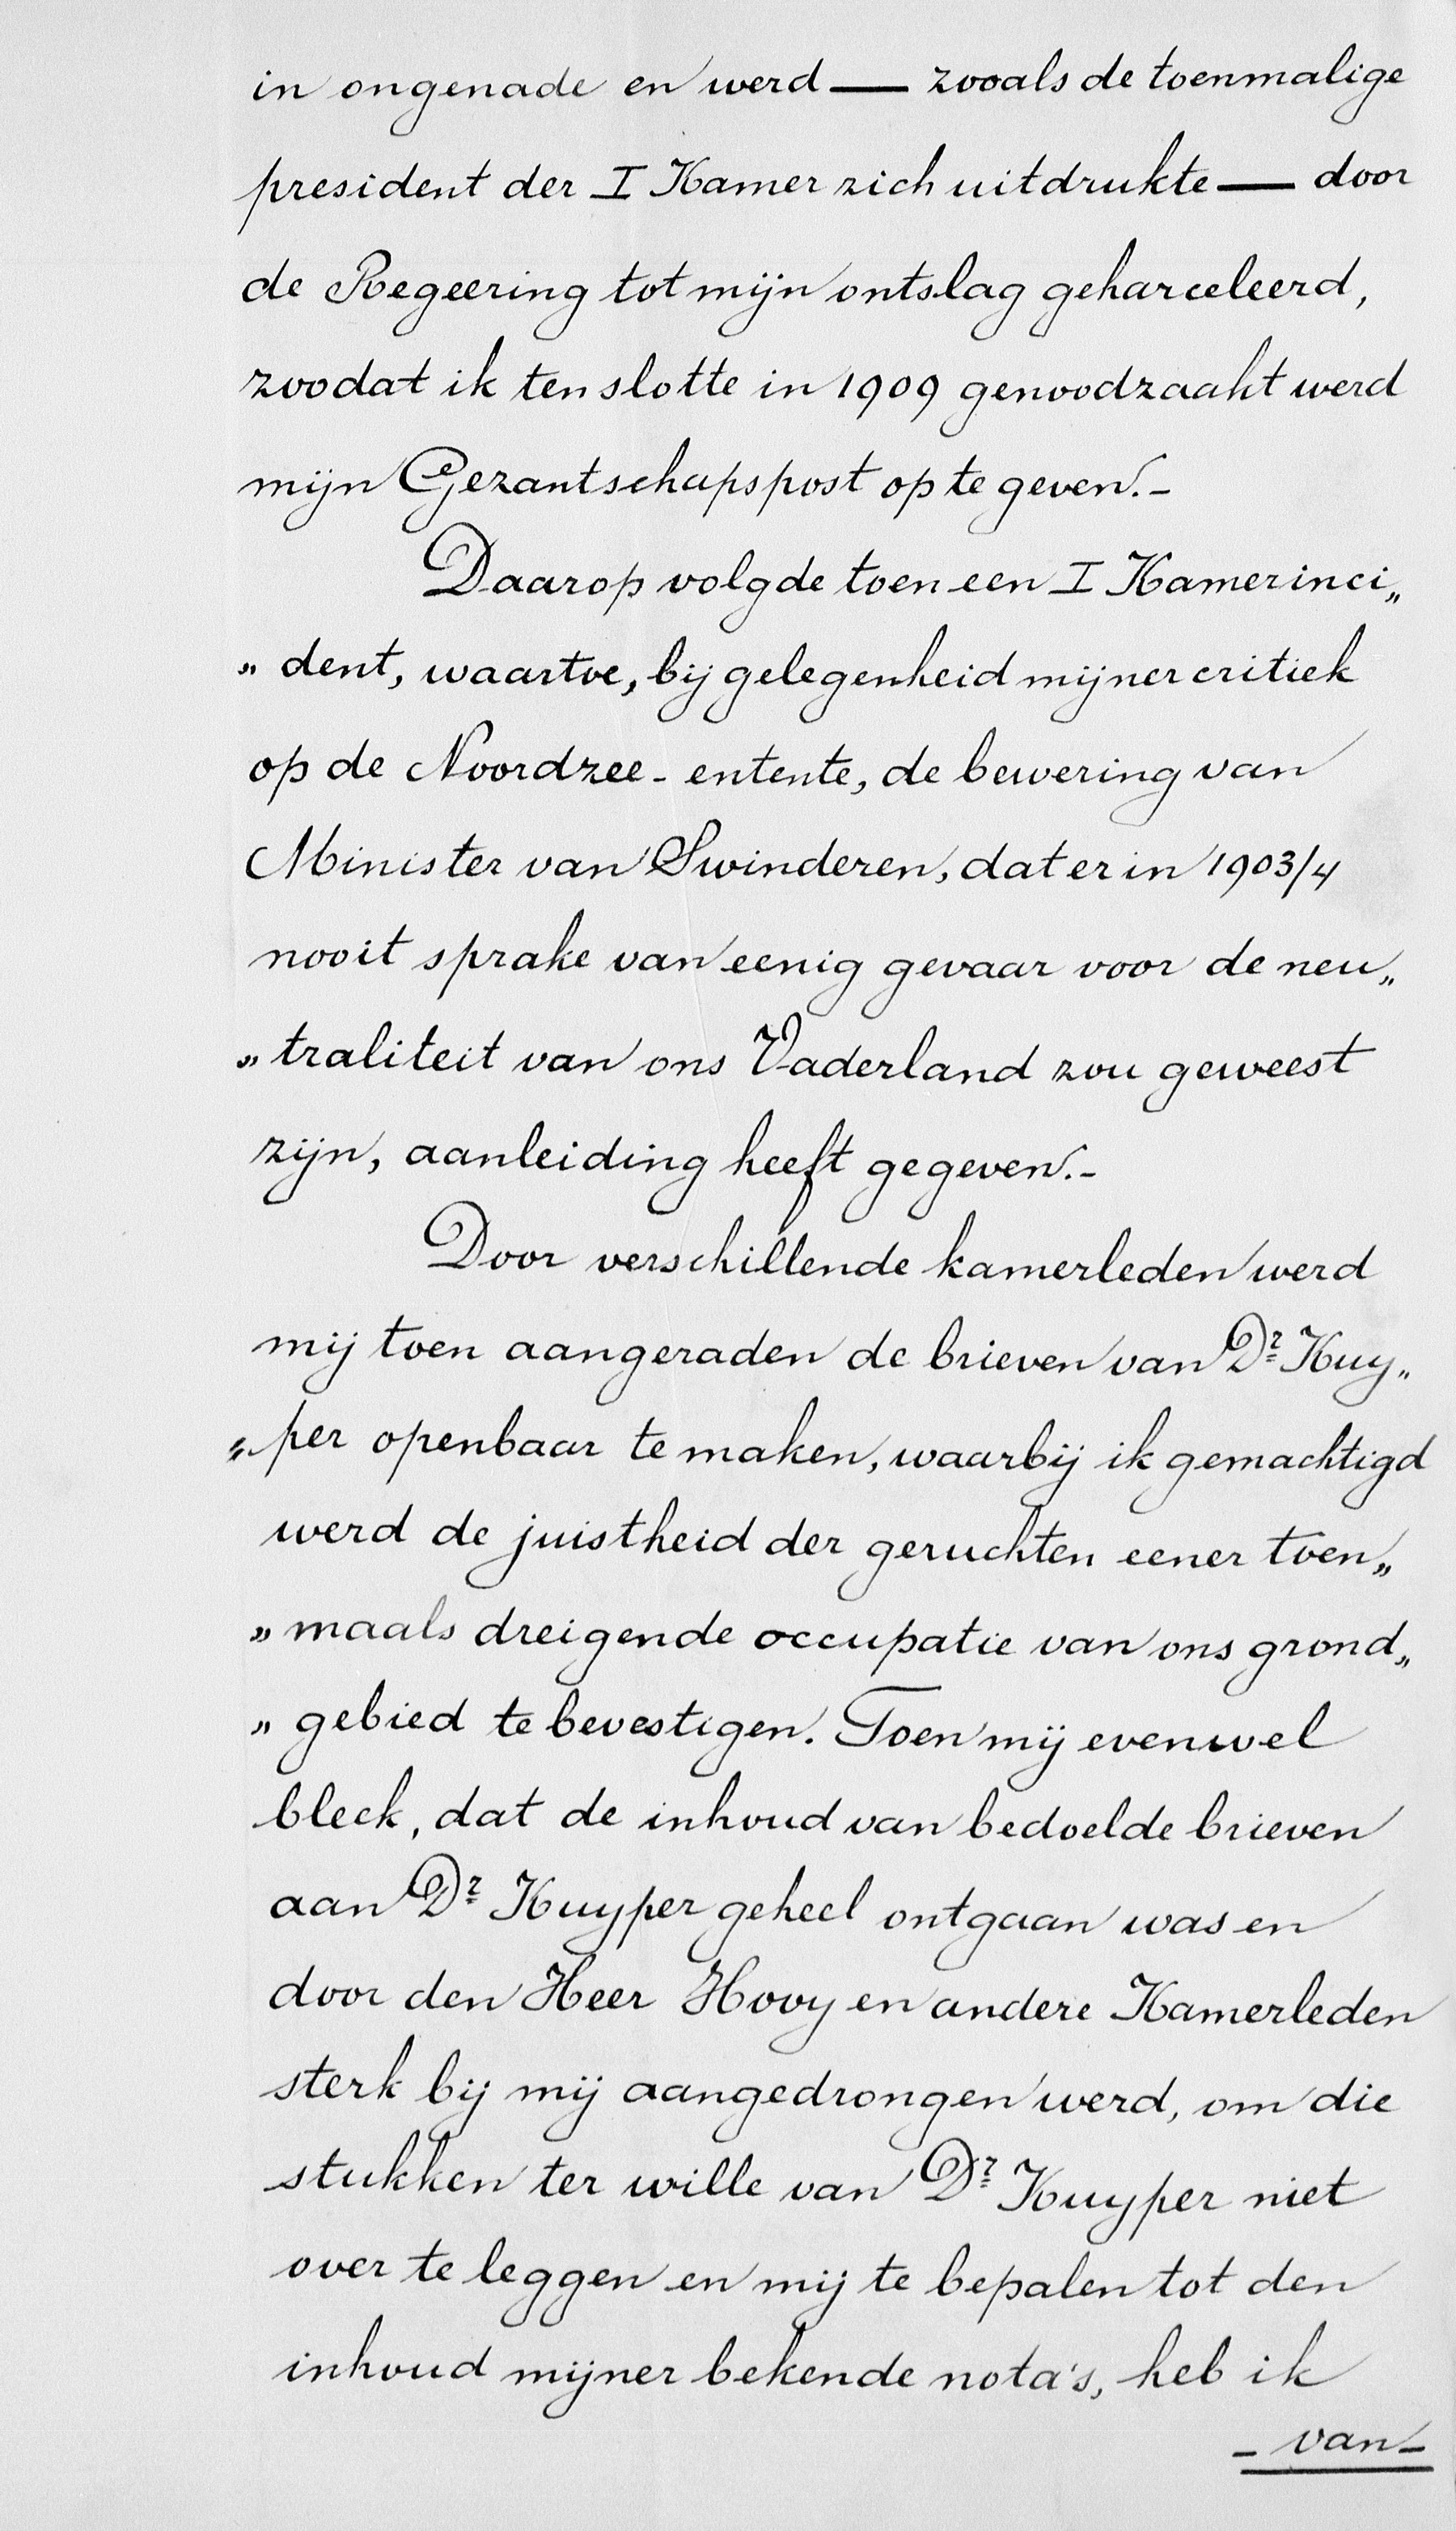 in ongenade en werd — zooals de toenmalige
president der I Kamer zich uitdrukte — door
de Regeering tot mijn ontslag geharceleerd,
zoodat ik ten slotte in 1909 genoodzaakt werd
mijn Gezantschapspost op te geven.-
Daarop volgde toen een I Kamerinci„
„dent, waartoe, bij gelegenheid mijner critiek
op de Noordzee-entente, de bewering van
Minister van Swinderen, dat er in 1903/4
nooit sprake van eenig gevaar voor de neu„
„traliteit van ons Vaderland zou geweest
zijn, aanleiding heeft gegeven.-
Door verschillende kamerleden werd
mij toen aangeraden de brieven van Dr Kuy„
„per openbaar te maken, waarbij ik gemachtigd
werd de juistheid der geruchten eener toen„
„maals dreigende occupatie van ons grond„
„gebied te bevestigen. Toen mij evenwel
bleek, dat de inhoud van bedoelde brieven
aan Dr Kuyper geheel ontgaan was en
door den Heer Hovy en andere Kamerleden
sterk bij mij aangedrongen werd, om die
stukken ter wille van Dr Kuyper niet
over te leggen en mij te bepalen tot den
inhoud mijner bekende nota's, heb ik
- van -